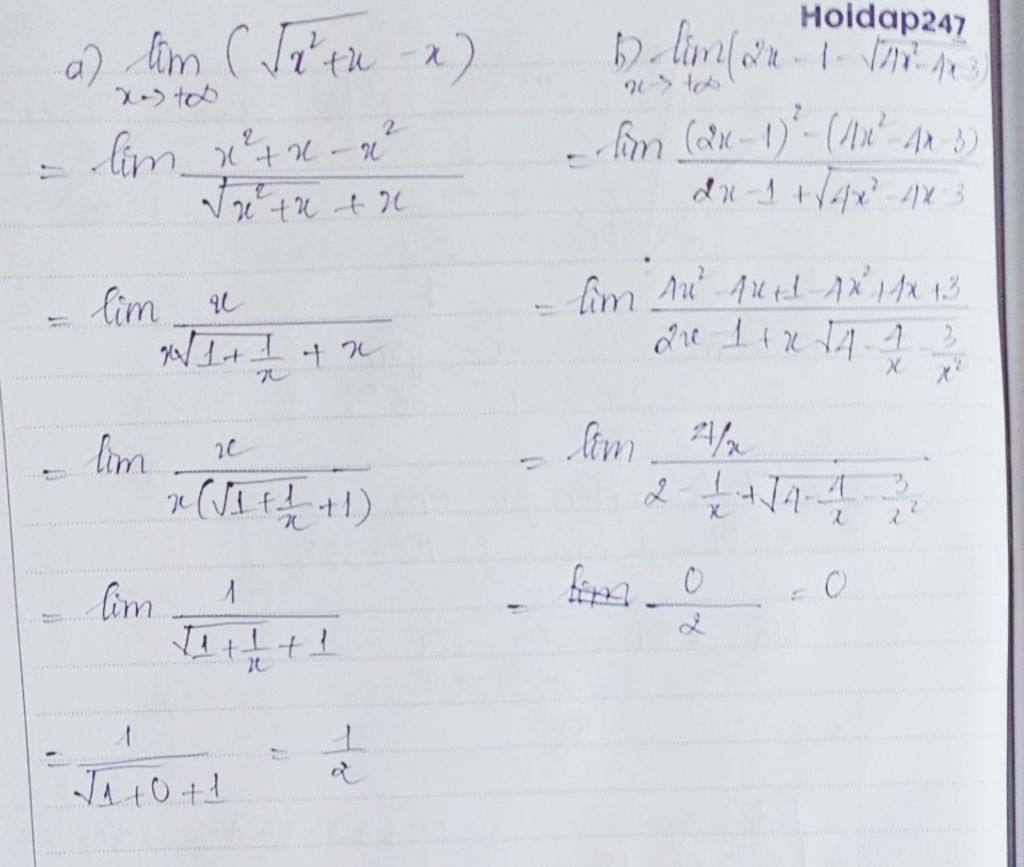 Hoidap247
a) lim_{x→+∞} (√(x²+x) - x)
= lim (x²+x-x²)/(√(x²+x) + x)
= lim x/(x√(1+1/x) + x)
= lim x/(x(√(1+1/x) +1))
= lim 1/(√(1+1/x) + 1)
= 1/(√(1+0) +1) = 1/2
b) lim_{x→+∞} (2x - 1 - √(4x²-4x-3))
= lim ((2x-1)² - (4x²-4x-3))/(2x-1 + √(4x²-4x-3))
= lim (4x²-4x+1-4x²+4x+3)/(2x-1+x√(4-4/x-3/x²))
= lim (4/x)/(2-1/x+√(4-4/x-3/x²))
= 0/2 = 0